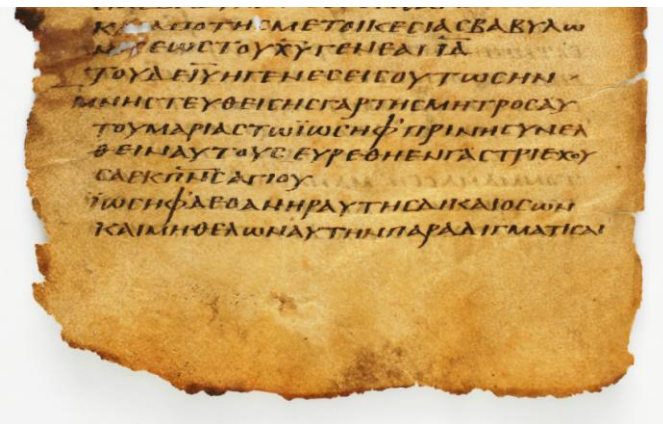 ΚΑΙ ΑΠΟ ΤΗϹ ΜΕΤΟΙΚΕϹΙΑϹ ΒΑΒΥΛΩ
ΕΩϹ ΤΟΥ Χ̅Υ̅ ΓΕΝΕΑΙ Ι̅Δ̅
ΤΟΥ ΔΕ Ι̅Υ̅ Η ΓΕΝΕϹΕΙϹ ΟΥΤΩϹ ΗΝ
ΜΝΗϹΤΕΥΘΕΙϹΗϹ ΓΑΡ ΤΗϹ ΜΗΤΡΟϹ ΑΥ
ΤΟΥ ΜΑΡΙΑϹ ΤΩ ΪΩϹΗΦ ΠΡΙΝ Η ϹΥΝΕΛ
ΘΕΙΝ ΑΥΤΟΥϹ ΕΥΡΕΘΗ ΕΝ ΓΑϹΤΡΙ ΕΧΟΥ
ϹΑ ΕΚ Π̅Ν̅Ϲ̅ ΑΓΙΟΥ
ΪΩϹΗΦ ΔΕ Ο ΑΝΗΡ ΑΥΤΗϹ ΔΙΚΑΙΟϹ ΩΝ
ΚΑΙ ΜΗ ΘΕΛΩΝ ΑΥΤΗΝ ΠΑΡΑΔΙΓΜΑΤΙϹΑΙ